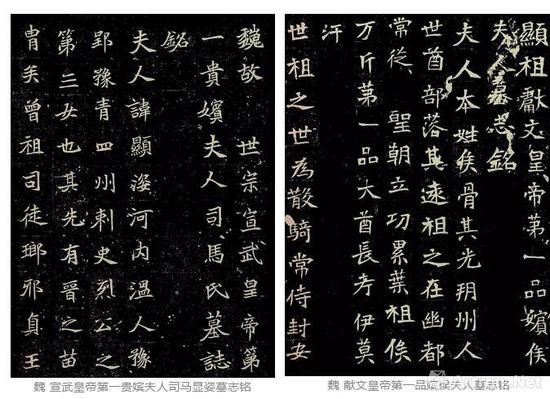 魏故 世宗宣武皇帝第
一貴嬪夫人司馬氏墓誌
銘
夫人諱顯姿河內溫人豫
郢豫青四州刺史烈公之
第三女也其先有晉之苗
冑矣曾祖司徒瑯邪貞王
魏 宣武皇帝第一贵嫔夫人司马显姿墓志铭
顯祖獻文皇帝第一品嬪侯
夫人墓志銘
夫人本姓侯骨其先朔州人
世酋部落其遠祖之在幽都
常從 聖朝立功累葉祖俟
万斤第一品大酋長考伊莫
汗
世祖之世為散騎常侍封安
魏 献文皇帝第一品嫔侯夫人墓志铭